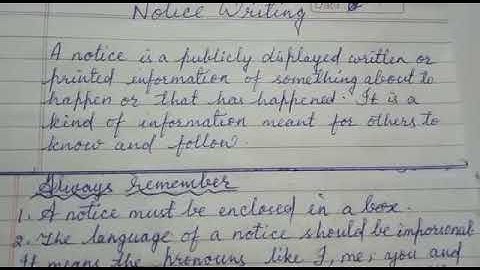 Notice Writing
Date
A notice is a publicly displayed written or
printed information of something about to
happen or that has happened. It is a
kind of information meant for others to
know and follow.
Always remember
1. A notice must be enclosed in a box.
2. The language of a notice should be impersonal
It means the pronouns like I, me, you and